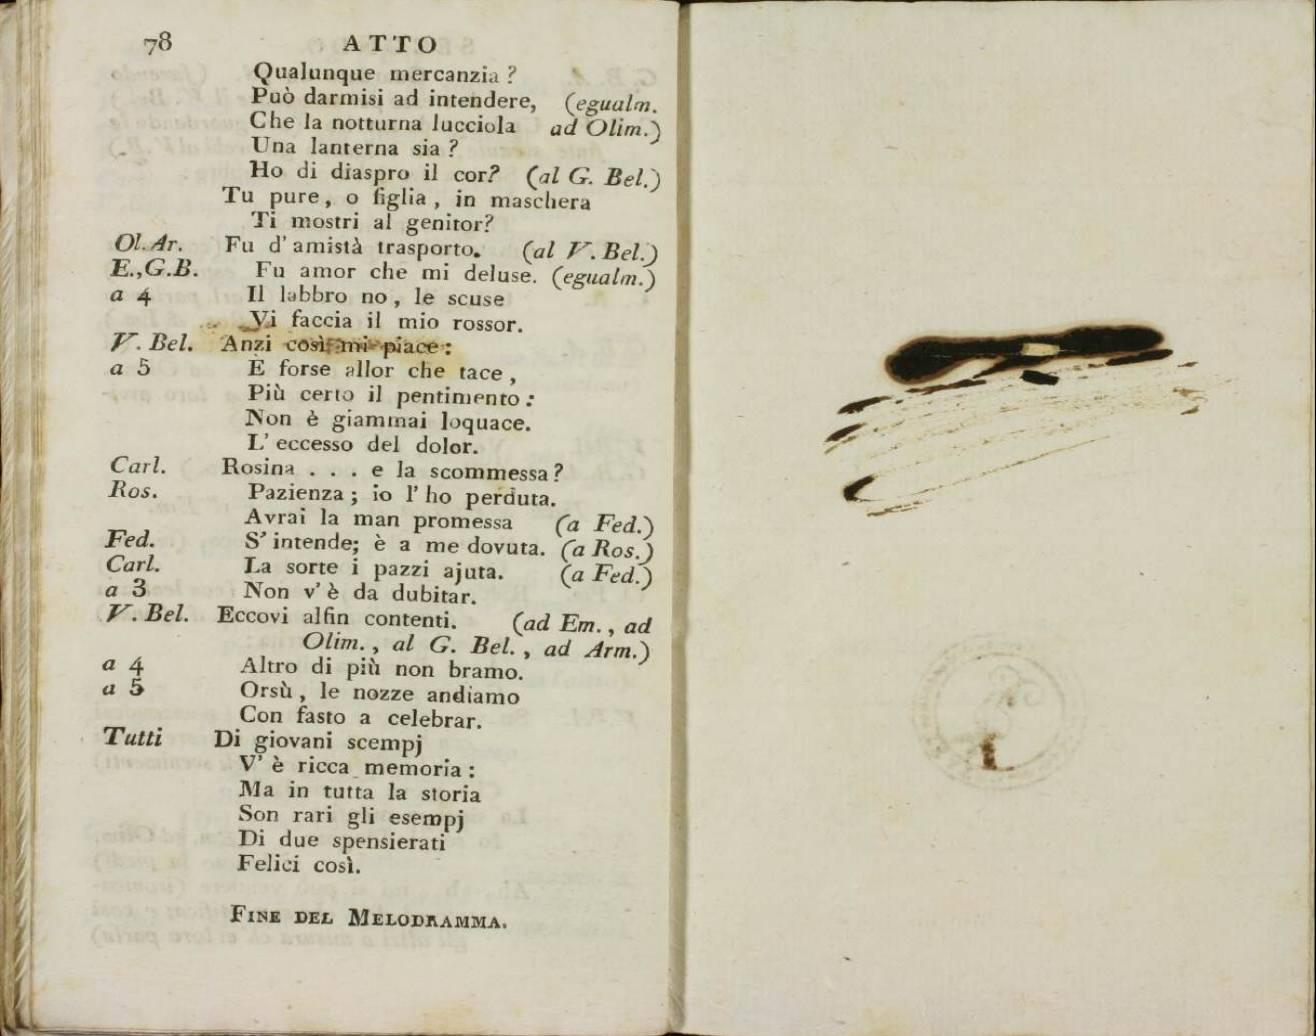 78 ATTO
Qualunque mercanzia ?
Può darmisi ad intendere, (egualm.
Che la notturna lucciola ad Olim.)
Una lanterna sia ?
Ho di diaspro il cor? (al G. Bel.)
Tu pure, o figlia, in maschera
Ti mostri al genitor?
Ol. Ar. Fu d'amistà trasporto. (al V. Bel.)
E., G.B. Fu amor che mi deluse. (egualm.)
a 4 Il labbro no, le scuse
Vi faccia il mio rossor.
V. Bel. Anzi così mi piace :
a 5 E forse allor che tace,
Più certo il pentimento :
Non è giammai loquace.
L'eccesso del dolor.
Carl. Rosina . . . e la scommessa?
Ros. Pazienza; io l'ho perduta.
Avrai la man promessa (a Fed.)
Fed. S'intende; è a me dovuta. (a Ros.)
Carl. La sorte i pazzi ajuta. (a Fed.)
a 3 Non v'è da dubitar.
V. Bel. Eccovi alfin contenti. (ad Em., ad
Olim., al G. Bel., ad Arm.)
a 4 Altro di più non bramo.
a 5 Orsù, le nozze andiamo
Con fasto a celebrar.
Tutti Di giovani scempj
V'è ricca memoria :
Ma in tutta la storia
Son rari gli esempj
Di due spensierati
Felici così.
FINE DEL MELODRAMMA.